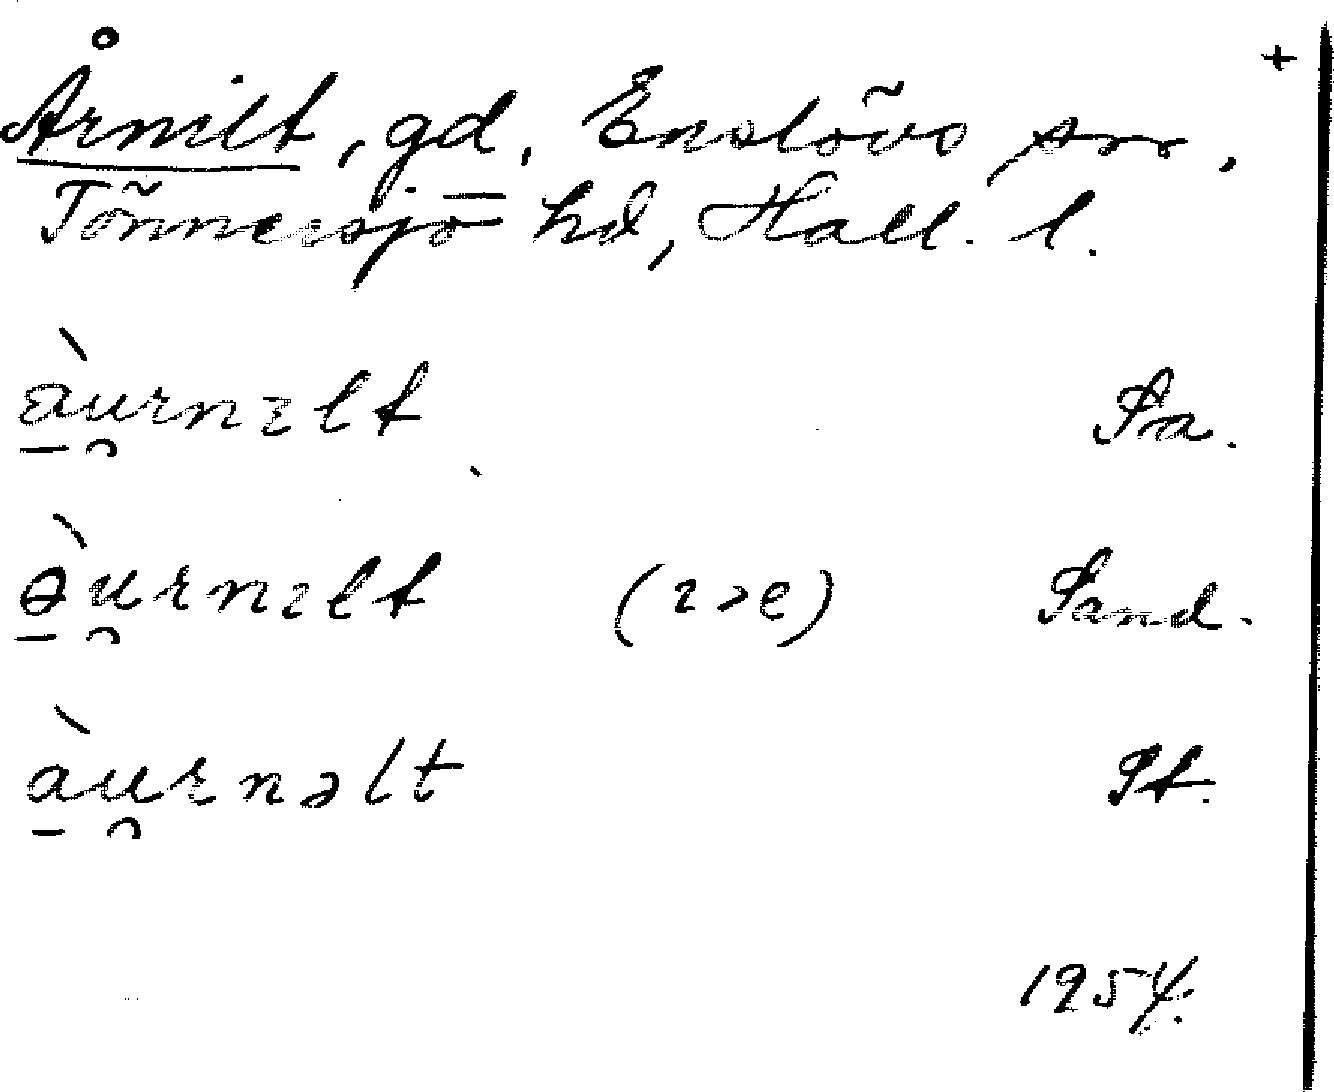 +
Årnilt, gd, Enslövs sn,
Tönnersjö hd, Hall. l.
àu̯rnɪlt
ə̀u̯rnɪlt (ɪ>e) Sand.
àu̯rnəlt St.
1954.